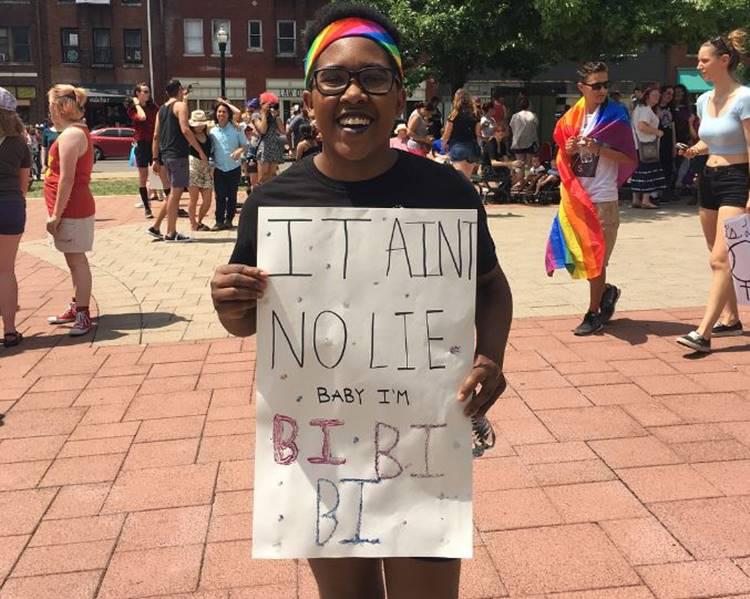 IT AINT
NO LIE
BABY I'M
BI BI
BI